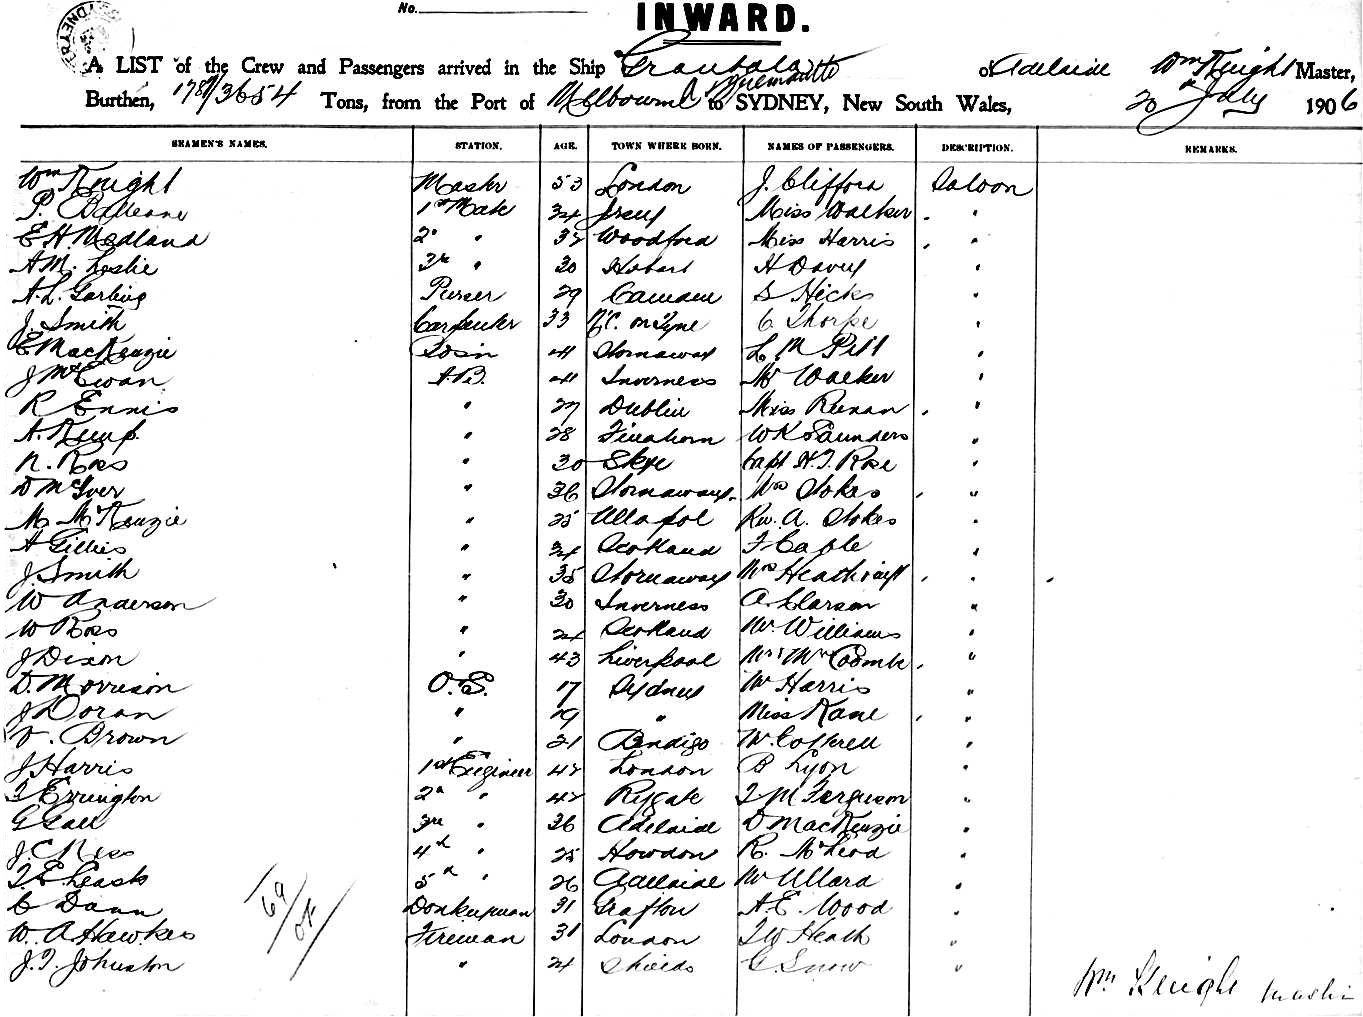 No.
INWARD.
A LIST of the Crew and Passengers arrived in the Ship Grantala of Adelaide Wm Knight Master,
Burthen, 3654 Tons, from the Port of Melbourne to SYDNEY, New South Wales, 20 July 1906
SEAMEN'S NAMES. STATION. AGE. TOWN WHERE BORN. NAMES OF PASSENGERS. DESCRIPTION. REMARKS.
Wm Knight Master 53 London J. Clifford Saloon
P. 1st Mate 34 Jersey Miss Walker "
E H Medland 2d " 32 Woodford Miss Harris "
A M. Leslie 3rd " 30 Hobart H Davey "
A. L. Garling Purser 29 Camden S Hicks "
J. Smith Carpenter 33 N'C. on Tyne C Thorpe "
E MacKenzie Bosin 41 Stornaway L M Pitt "
J McEwan A.B. 41 Inverness Mr Walker "
R Ennis " 27 Dublin Miss "
A. Kemp " 28 Finahorn W K Saunders "
N. Ross " 30 Skye Capt H. J. Rose "
D McIver " 36 Stornaway Mrs Stokes "
M McKenzie " 25 Ullapol Rev. A. Stokes "
A Gillies " 34 Scotland F Caple "
J. Smith " 35 Stornaway Mrs "
W Anderson " 30 Inverness A. Clarson "
W Ross " 24 Scotland Mr. Williams "
J Dixon " 43 Liverpool McCoomb "
D. Morrison O.S. 17 Sydney Mr Harris "
J Doran " 19 " Miss Kane "
Brown " 21 Bendigo W. Cottrell "
J Harris 1st Engineer 42 London B Lyon "
Errington 2d " 42 Rygate J M Ferguson "
G Gall 3rd " 36 Adelaide D MacKenzie "
J. C Ness 4th " 25 Howdon R. McLeod "
Leask 5th " 26 Adelaide Mr Ullard "
C Dann Donkeyman 31 Grafton A. E. Wood "
W. A Hawkes Fireman 31 London J W Heath "
J. T. Johnston " 24 Shields G. Snow "
69/
Wm Knight Master